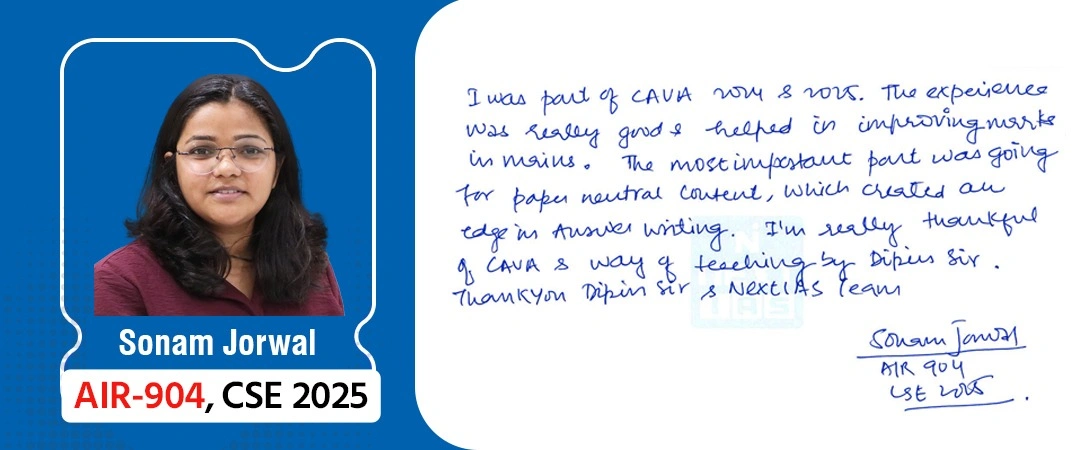 Sonam Jorwal
AIR-904, CSE 2025
I was part of CAVA 2024 & 2025. The experience
was really good & helped in improving marks
in mains. The most important part was going
for paper neutral content, which created an
edge in Answer writing. I'm really thankful
of CAVA & way of teaching by Dipin Sir.
Thankyou Dipin Sir & NEXT IAS Team
Sonam Jorwal
AIR 904
CSE 2025